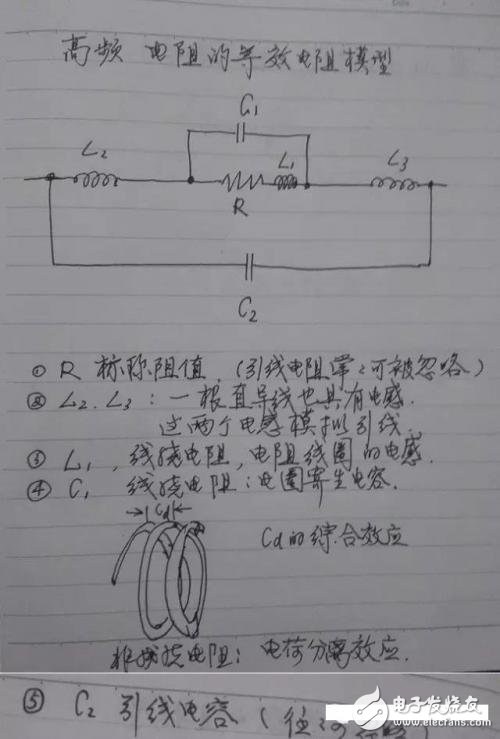 高频 电阻的等效电阻模型
C1
L2
L1
L3
R
C2
① R 标称阻值.(引线电阻常常可被忽略)
② L2. L3:一根直导线也具有电感.
这两个电感模拟引线.
③ L1, 线绕电阻,电阻线圈的电感.
④ C1 线绕电阻:电圈寄生电容.
Cd
Cd的综合效应
非线绕电阻:电荷分离效应.
⑤ C2 引线电容 (往
电子发烧友
www.elecfans.com